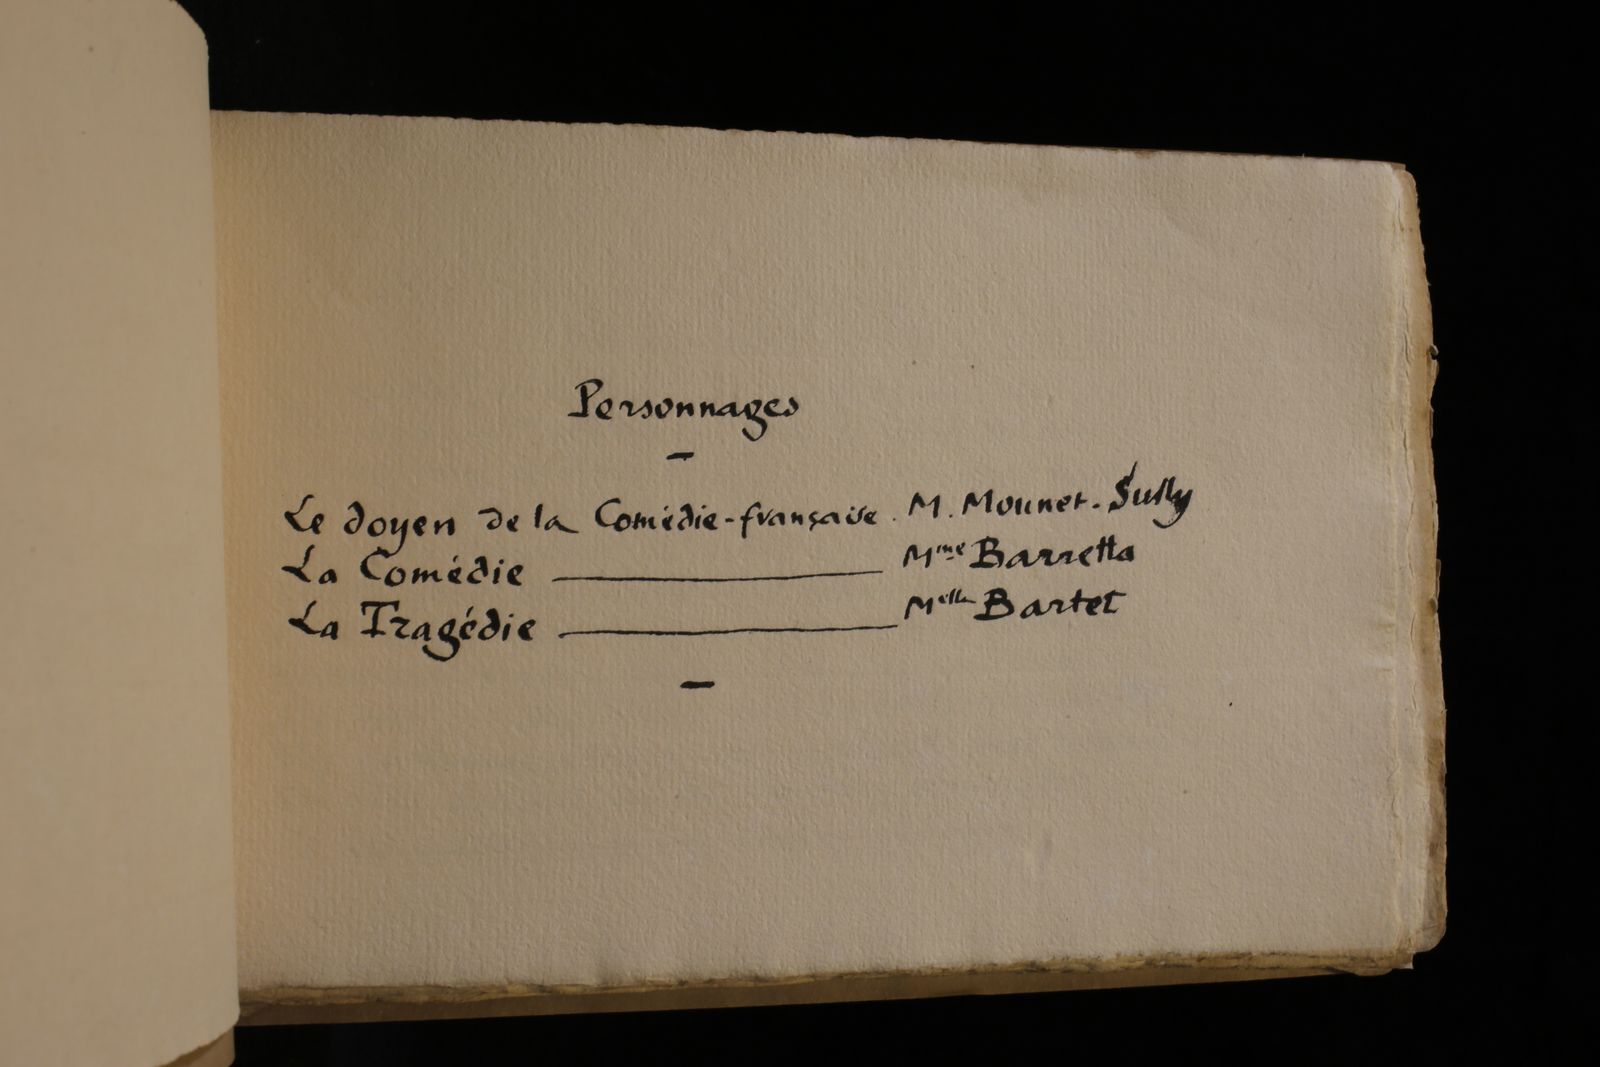 Personnages
Le doyen de la Comédie-française. M. Mounet-Sully
La Comédie — Mme Barretta
La Tragédie — Melle Bartet